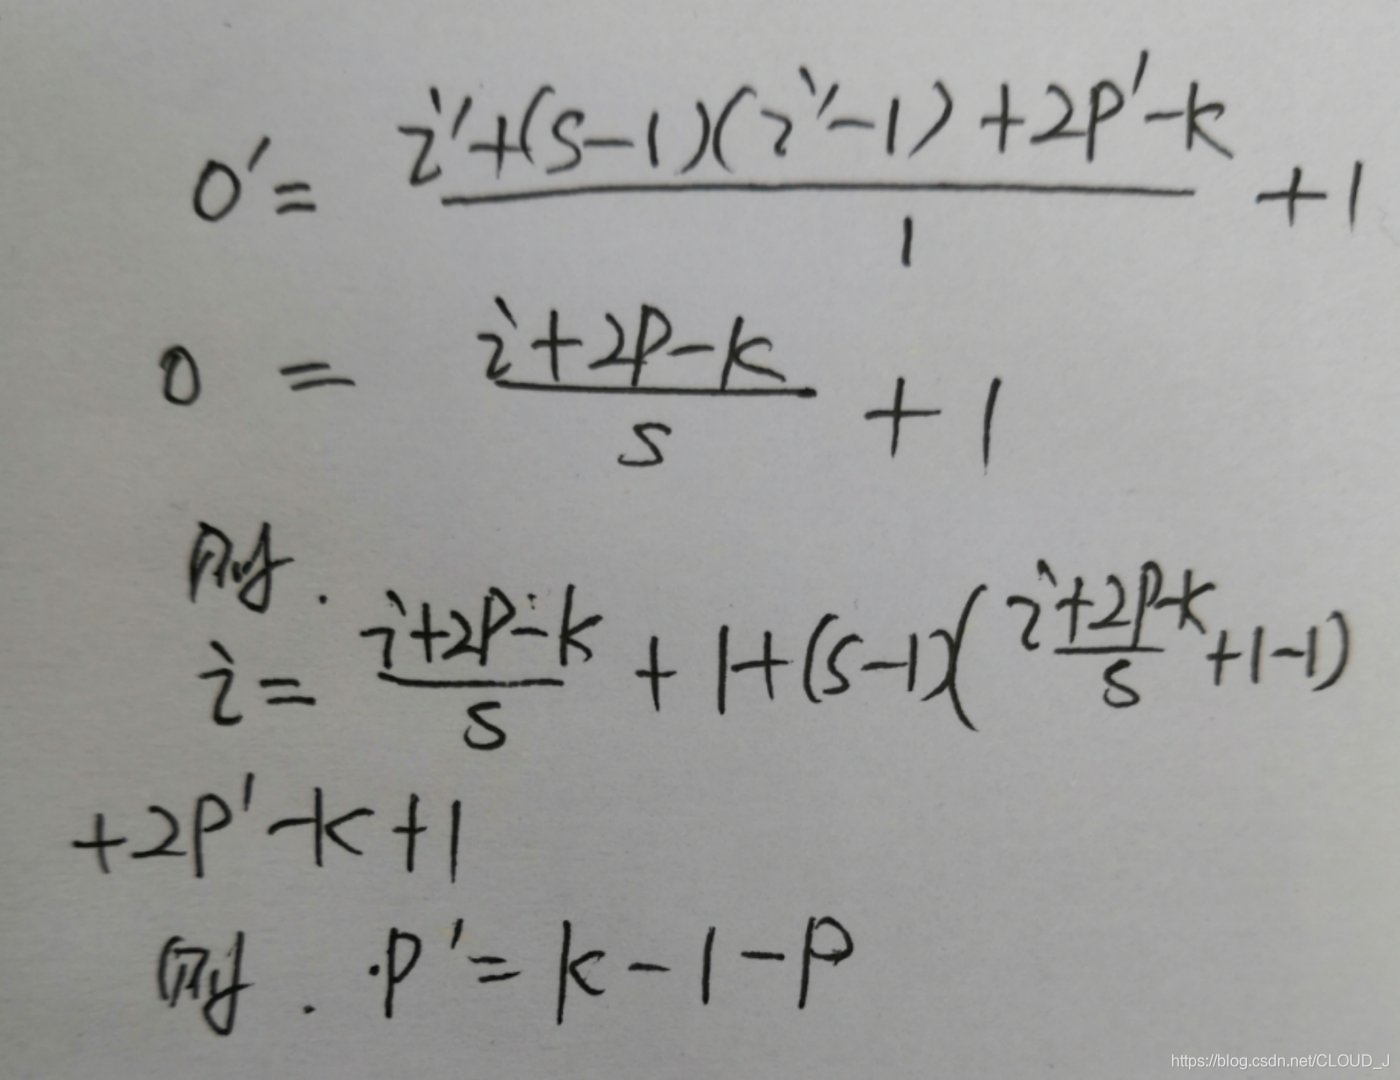 o' = \frac{i' + (s-1)(i'-1) + 2p' - k}{1} + 1
o = \frac{i + 2p - k}{s} + 1
则.
i = \frac{i + 2p - k}{s} + 1 + (s-1)(\frac{i + 2p - k}{s} + 1 - 1)
+ 2p' - k + 1
则. p' = k - 1 - p
https://blog.csdn.net/CLOUD_J